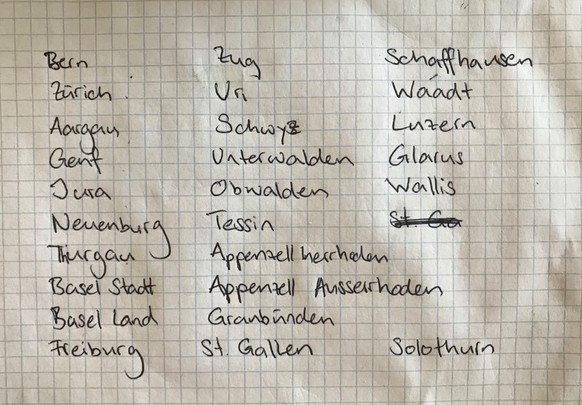 Bern Zug Schaffhausen
Zürich Uri Waadt
Aargau Schwyz Luzern
Genf Unterwalden Glarus
Jura Obwalden Wallis
Neuenburg Tessin St. Ga
Thurgau Appenzell Inerrhoden
Basel Stadt Appenzell Ausserrhoden
Basel Land Graubünden
Freiburg St. Gallen Solothurn